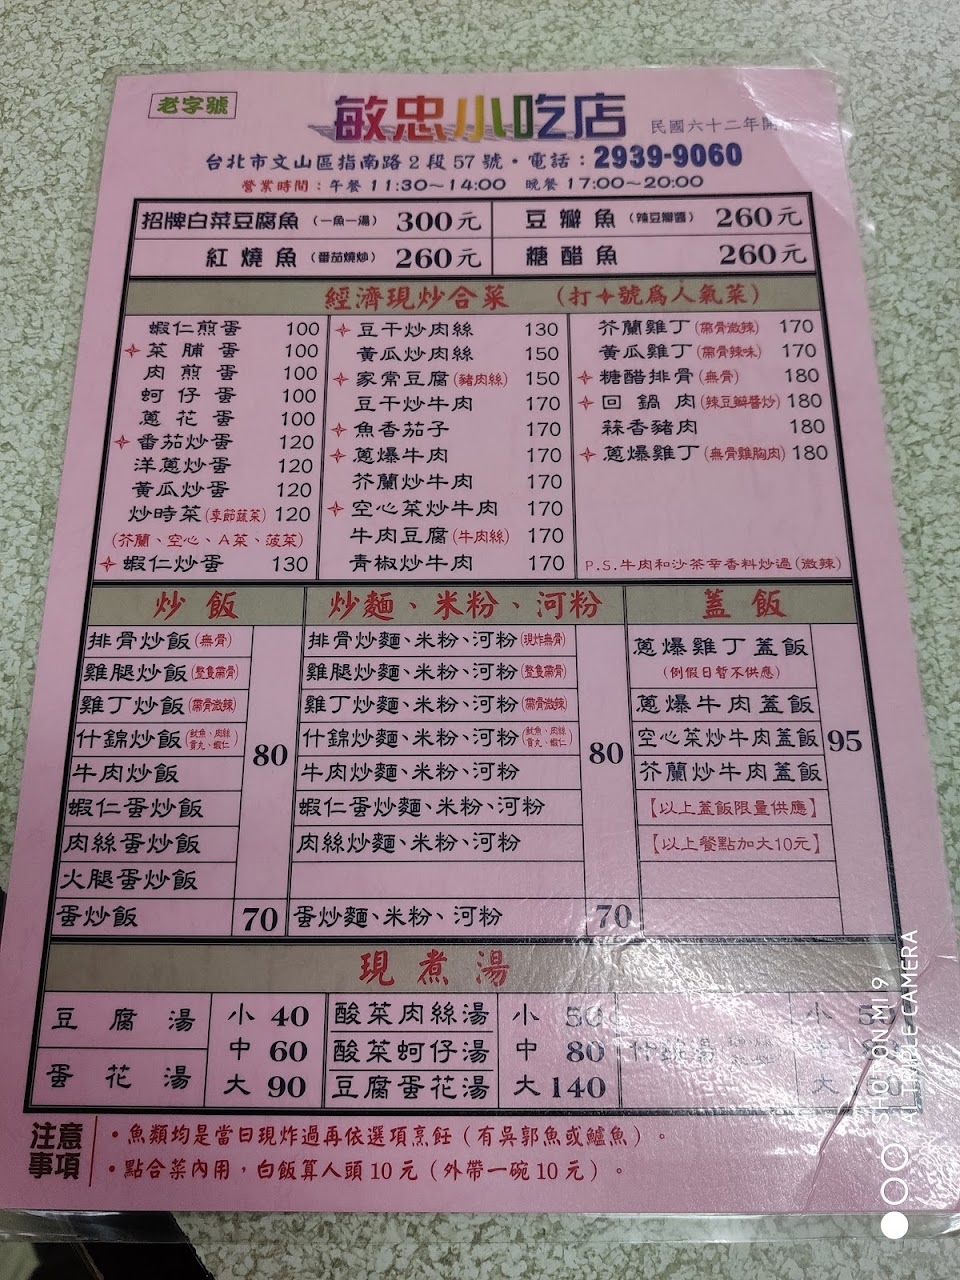 老字號
敏忠小吃店 民國六十二年開
台北市文山區指南路2段57號・電話：2939-9060
營業時間：午餐 11:30～14:00 晚餐 17:00～20:00
招牌白菜豆腐魚（一魚一湯） 300元
豆瓣魚（辣豆瓣醬） 260元
紅燒魚（番茄燒炒） 260元
糖醋魚 260元
經濟現炒合菜 （打✦號爲人氣菜）
蝦仁煎蛋 100
✦菜脯蛋 100
肉煎蛋 100
蚵仔蛋 100
蔥花蛋 100
✦番茄炒蛋 120
洋蔥炒蛋 120
黃瓜炒蛋 120
炒時菜(季節蔬菜) 120
(芥蘭、空心、A菜、菠菜)
✦蝦仁炒蛋 130
✦豆干炒肉絲 130
黃瓜炒肉絲 150
✦家常豆腐(豬肉絲) 150
豆干炒牛肉 170
✦魚香茄子 170
✦蔥爆牛肉 170
芥蘭炒牛肉 170
✦空心菜炒牛肉 170
牛肉豆腐(牛肉絲) 170
青椒炒牛肉 170
芥蘭雞丁(帶骨微辣) 170
黃瓜雞丁(帶骨辣味) 170
✦糖醋排骨(無骨) 180
✦回鍋肉(辣豆瓣醬炒) 180
蒜香豬肉 180
✦蔥爆雞丁(無骨雞胸肉) 180
P.S.牛肉和沙茶辛香料炒過(微辣)
炒飯
排骨炒飯(無骨)
雞腿炒飯(整隻帶骨)
雞丁炒飯(帶骨微辣)
什錦炒飯(魷魚、肉絲 貢丸、蝦仁)
牛肉炒飯
蝦仁蛋炒飯
肉絲蛋炒飯
火腿蛋炒飯
80
蛋炒飯 70
炒麵、米粉、河粉
排骨炒麵、米粉、河粉(現炸無骨)
雞腿炒麵、米粉、河粉(整隻帶骨)
雞丁炒麵、米粉、河粉(帶骨微辣)
什錦炒麵、米粉、河粉(魷魚、肉絲 貢丸、蝦仁)
牛肉炒麵、米粉、河粉
蝦仁蛋炒麵、米粉、河粉
肉絲炒麵、米粉、河粉
80
蛋炒麵、米粉、河粉 70
蓋飯
蔥爆雞丁蓋飯
(例假日暫不供應)
蔥爆牛肉蓋飯
空心菜炒牛肉蓋飯
芥蘭炒牛肉蓋飯
95
【以上蓋飯限量供應】
【以上餐點加大10元】
現煮湯
豆腐湯
蛋花湯
小 40
中 60
大 90
酸菜肉絲湯
酸菜蚵仔湯
豆腐蛋花湯
小 50
中 80
大 140
什錦湯
小
大
注意事項
・魚類均是當日現炸過再依選項烹飪（有吳郭魚或鱸魚）。
・點合菜內用，白飯算人頭10元（外帶一碗10元）。
SHOT ON MI 9
TRIPLE CAMERA